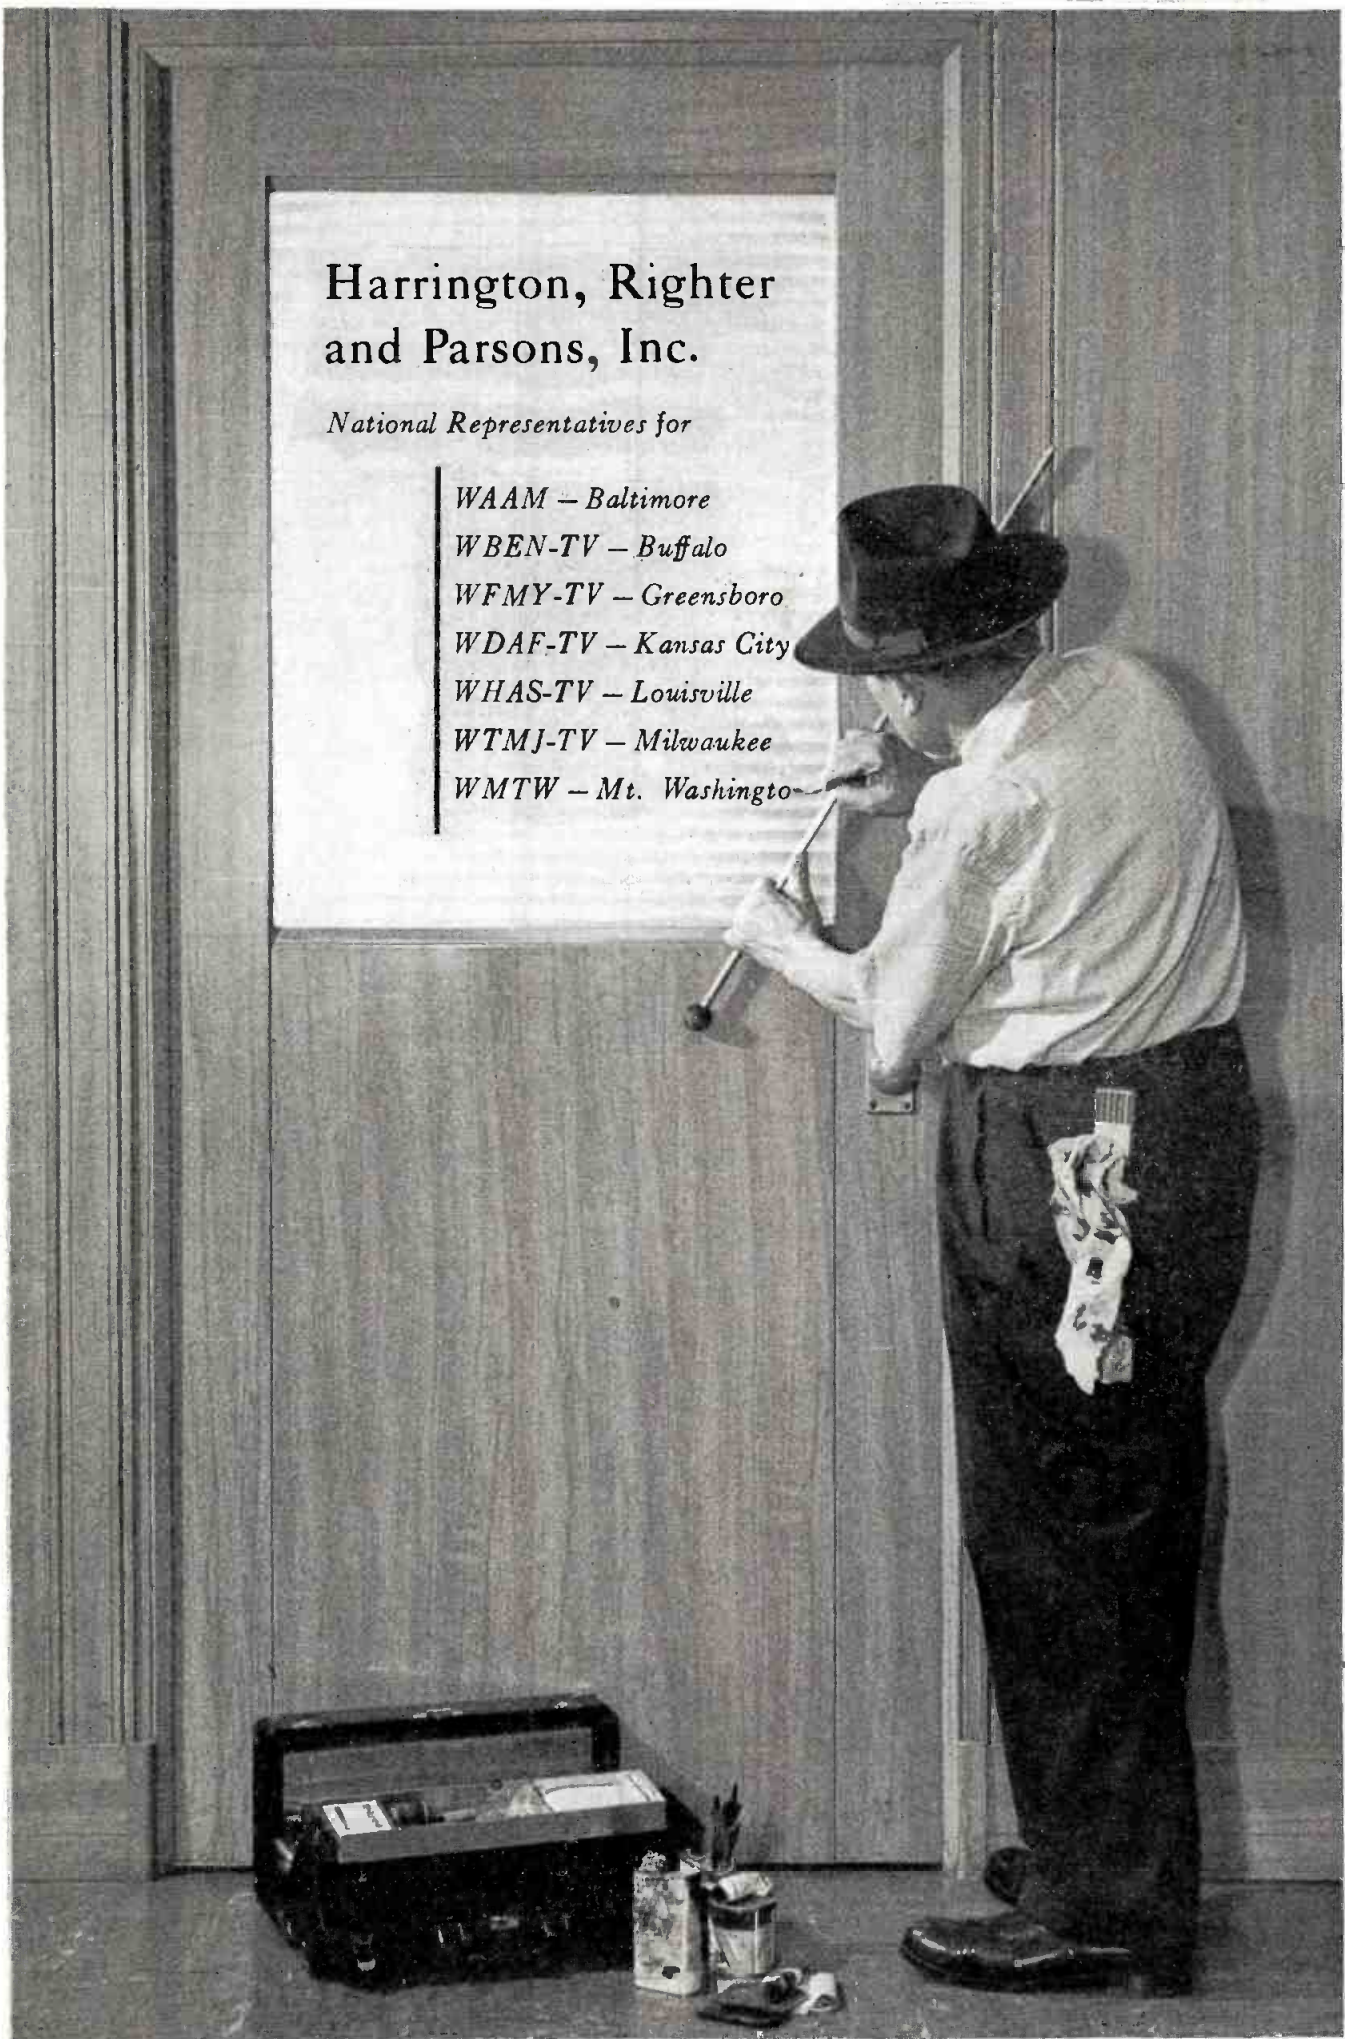 Harrington, Righter
and Parsons, Inc.
National Representatives for
WAAM – Baltimore
WBEN-TV – Buffalo
WFMY-TV – Greensboro
WDAF-TV – Kansas City
WHAS-TV – Louisville
WTMJ-TV – Milwaukee
WMTW – Mt. Washingto